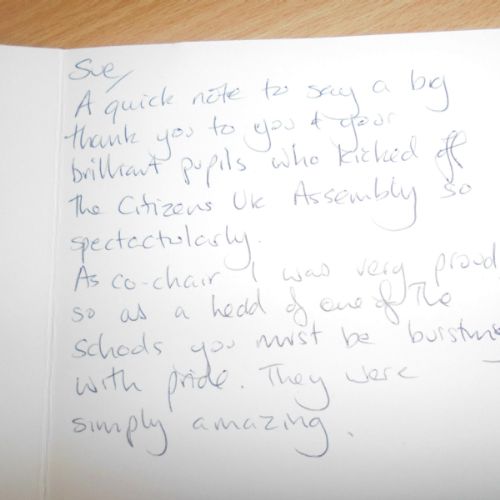 Sue,
A quick note to say a big
thank you to you & your
brilliant pupils who kicked off
the Citizens UK Assembly so
spectactularly.
As co-chair I was very proud
so as a head of one of the
schools you must be bursting
with pride. They were
simply amazing.